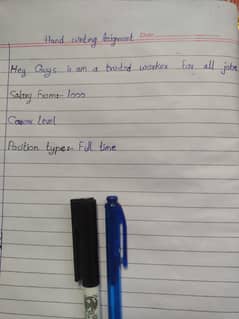 Hand writing Assignment
Hey Guys i am a trusted worker for all jobs
Salary from:- 1000
Career level
Position type:- Full time